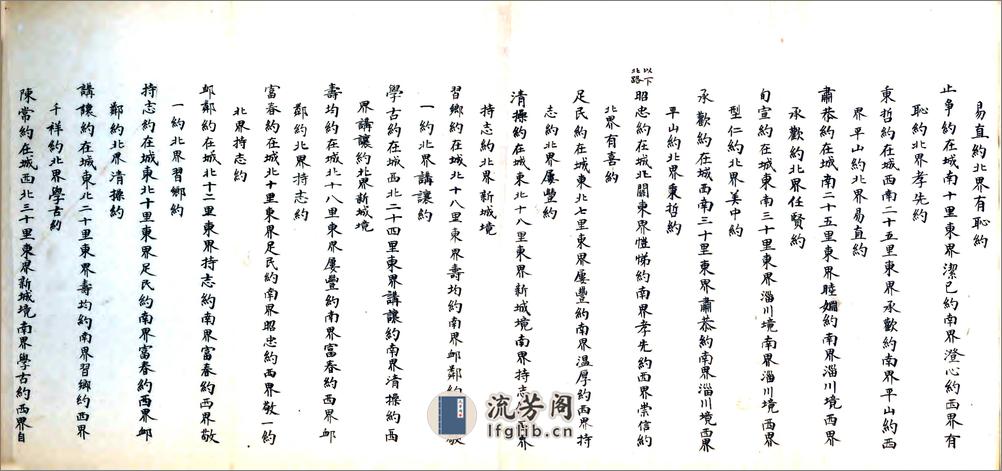 易直約北界有恥約
止爭約在城南十里東界潔已約南界澄心約西界有
恥約北界孝先約
東哲約在城西南二十五里東界承歡約南界平山約西
界平山約北界易直約
肅恭約在城南二十五里東界睦婣約南界淄川境西界
承歡約北界任賢約
旬宣約在城東南三十里東界淄川境南界淄川境西界
型仁約北界美中約
承歡約在城西南三十里東界肅恭約南界淄川境西界
平山約北界秉哲約
以下北路
昭忠約在城北關東界愷悌約南界孝先約西界崇信約
北界有喜約
足民約在城東北七里東界屢豐約南界温厚約西界持
志約北界屢豐約
清操約在城東北十八里東界新城境南界持志界
持志約北界新城境
習鄉約在城北十八里東界壽均約南界邮鄰約敬
一約北界講讓約
學古約在城西北二十四里東界講讓約南界清操約西
界講讓約北界新城境
壽均約在城北十八里東界屢豐約南界富春約西界邮
鄰約北界持志約
富春約在城北十里東界足民約南界昭忠約西界敬一約
北界持志約
邮鄰約在城北十二里東界持志約南界富春約西界敬
一約北界習鄉約
持志約在城東北十里東界足民約南界富春約西界邮
鄰約北界清操約
講讓約在城東北二十里東界壽均約南界習鄉約西界
千祥約北界學古約
陳常約在城西北三十里東界新城境南界學古約西界自
流芳阁
lfglib.cn